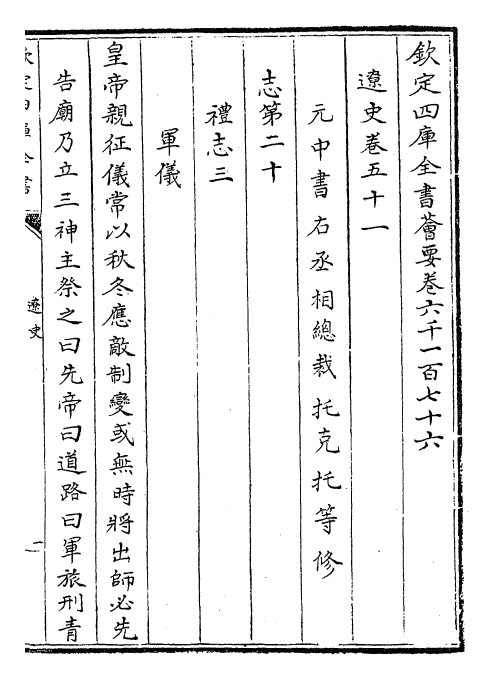 欽定四庫全書薈要卷六千一百七十六
遼史卷五十一
元中書右丞相總裁托克托等修
志第二十
禮志三
軍儀
皇帝親征儀常以秋冬應敵制變或無時將出師必先
告廟乃立三神主祭之曰先帝曰道路曰軍旅刑青
欽定四庫全書
遼史